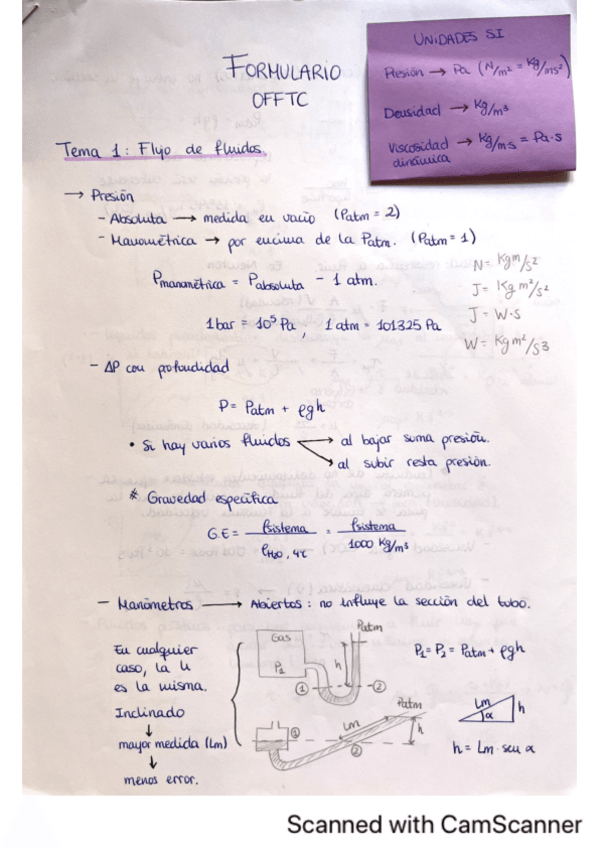 UNIDADES SI
Presión → Pa (N/m² = Kg/ms²)
Densidad → Kg/m³
Viscosidad dinámica → Kg/m·s = Pa·s
FORMULARIO
OFFTC
Tema 1: Flujo de fluidos.
→ Presión
- Absoluta → medida en vacío (Patm = 2)
- Manométrica → por encima de la Patm. (Patm = 1)
Pmanométrica = Pabsoluta - 1 atm.
N = Kg m/s²
J = Kg m²/s²
J = W·s
W = Kg m²/s3
1 bar = 10⁵ Pa, 1 atm = 101325 Pa
- ΔP con profundidad
P = Patm + ρgh
• Si hay varios fluidos → al bajar suma presión.
→ al subir resta presión.
* Gravedad específica
G.E = ρsistema / ρH2O, 4℃ = ρsistema / 1000 Kg/m³
- Manómetros → Abiertos: no influye la sección del tubo.
En cualquier
caso, la h
es la misma.
Inclinado
↓
mayor medida (Lm)
↓
menos error.
Gas
P1
Patm
h
①
②
P1 = P2 = Patm + ρgh
①
Lm
Patm
h
②
Lm
α
h
h = Lm · sen α
Scanned with CamScanner